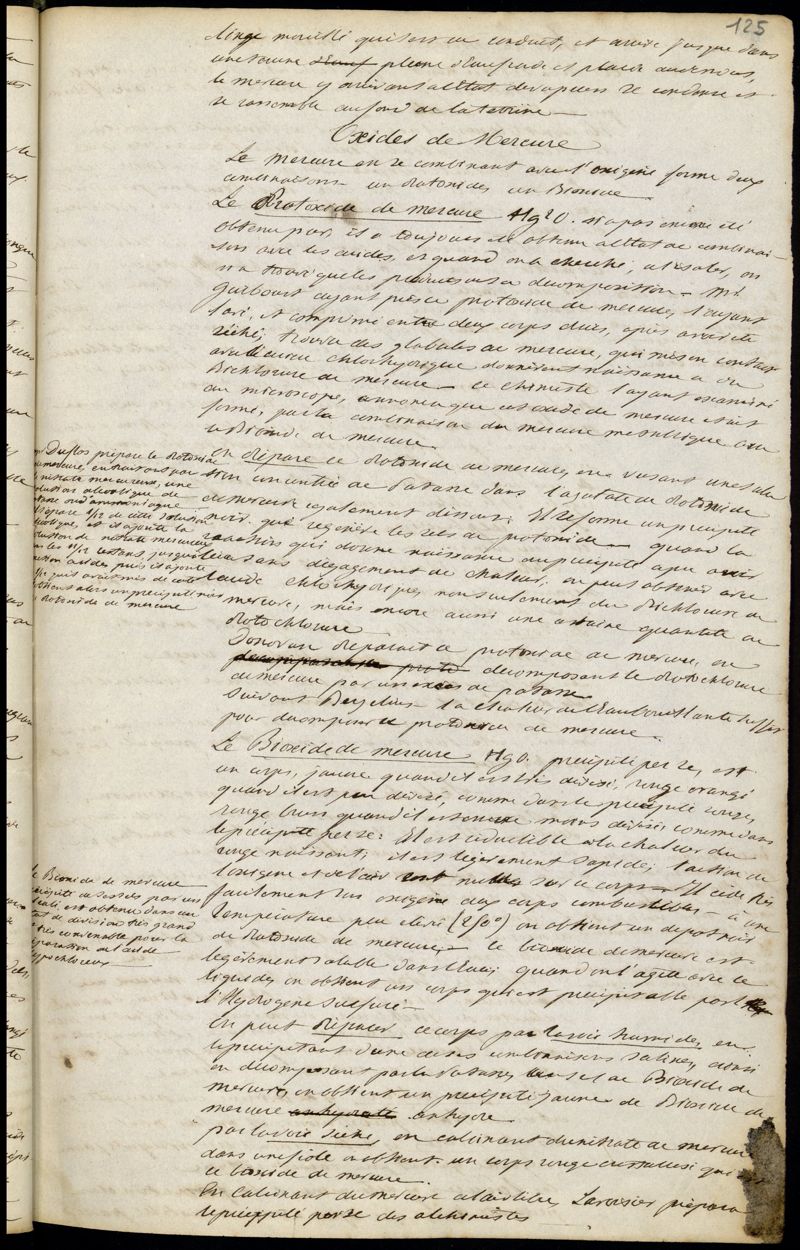 125
linge mouillé qui sert de conduit, et arrive jusque dans
une terrine pleine d'eau froide et placée au dessous,
le mercure y arrivant à l'état de vapeurs se condense et
se rassemble au fond de la terrine —
Oxides de Mercure
Le mercure en se combinant avec l'oxigène forme deux
combinaisons un Protoxide, un Bioxide
Le Protoxide de mercure Hg²O. n'a pas encore été
obtenu pur, il a toujours été obtenu à l'état de combinai-
son avec les acides, et quand on a cherché à l'isoler, on
n'a trouvé que les produits de sa décomposition — Mr.
Guibourt ayant pris ce protoxide de mercure, l'ayant
lavé, et comprimé entre deux corps durs, après avoir été
séché, trouva des globules de mercure, qui mis en contact
avec l'acide chlorhydrique donnèrent naissance à du
Bichlorure de mercure — ce chimiste l'ayant examiné
au microscope, annonça que cet oxide de mercure était
formé, par la combinaison du mercure métallique avec
le Bioxide de mercure
on prépare ce Protoxide de mercure, en versant une solu
tion concentrée de Potasse dans l'azotate de Protoxide
de mercure également dissous; Il se forme un précipité
noir, que régénère les sels de protoxide — quand la
réaction qui donne naissance au précipité a pu avoir
lieu sans dégagement de chaleur, on peut obtenir avec
l'acide chlorhydrique, non seulement du Bichlorure de
mercure, mais encore aussi une certaine quantité de
Protochlorure
Donovan préparait ce protoxide de mercure, en
decomposant le Protochlorure
de mercure par un excès de potasse
Suivant Berzelius la chaleur de l'Eau bouillante suffit
pour décomposer ce protoxide de mercure.
Le Bioxide de mercure HgO. précipité per se, est
un corps, jaune quand il est très divisé, rouge orangé
quand il est peu divisé, comme dans le précipité rouge,
rouge brun quand il est encore moins divisé comme dans
le précipité per se: Il est réductible à la chaleur du
rouge naissant; il est légèrement sapide; l'action de
l'oxigène et de l'air est nulle sur ce corps — Il cède très
facilement son oxigène aux corps combustibles — à une
température peu élevée (250°) on obtient un dépot noir
de Protoxide de mercure — le bioxide de mercure est
légèrement soluble dans l'eau; quand on l'agite avec ce
liquide, on obtient un corps qui est précipitable par
l'Hydrogène sulfuré —
On peut préparer ce corps par la voie humide, en
le précipitant d'une de ses combinaisons salines, ainsi
en décomposant par la Potasse, un sel de Bioxide de
mercure, on obtient un précipité jaune de Bioxide de
mercure anhydre
par la voie sèche, en calcinant du nitrate de mercure
dans une fiole on obtient un corps rouge cristallisé qui est
le bioxide de mercure.
En calcinant du mercure à l'air libre, Lavoisier prépara
le précipité per se des alchimistes
Duflos prépare le Protoxide
de mercure, en traitant par
le nitrate mercureux, une
solution alcoolique de
Il sépare 1/12 de cette solution
alcoolique, et il ajoute la
solution de nitrate mercureux
les 11/12 restans jusqu'à
puis il ajoute
1/12 qu'il avait mis de coté
obtient alors un précipité noir
Protoxide de mercure
Le Bioxide de mercure
précipité de ses sels par un
alcali, est obtenu dans un
état de division très grand
très convenable pour la
préparation de l'acide
hypochloreux